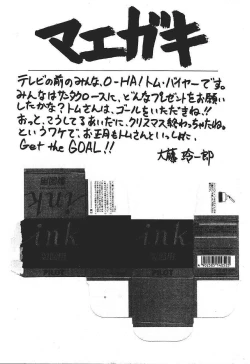 マエガキ
テレビの前のみんな、O-HA! トム・バイヤーです。
みんなはサンタクロースに、どんなプレゼントをお願い
したかな？トムさんは、ゴールをいただきね!!
おっと、こうしてるあいだに、クリスマス終わっちゃたね。
というワケで、お正月もトムさんといっしょに、
Get the GOAL!!
大藤 玲一郎
ink
ink
ink
PILOT
PILOT